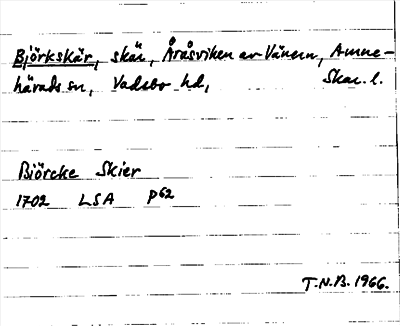 Björkskär, skär, Åråsviken av Vänern, Amne-
härads sn, Vadsbo hd, Skar. l.
Biörcke Skier
1702 LSA P62
T.N.B. 1966.